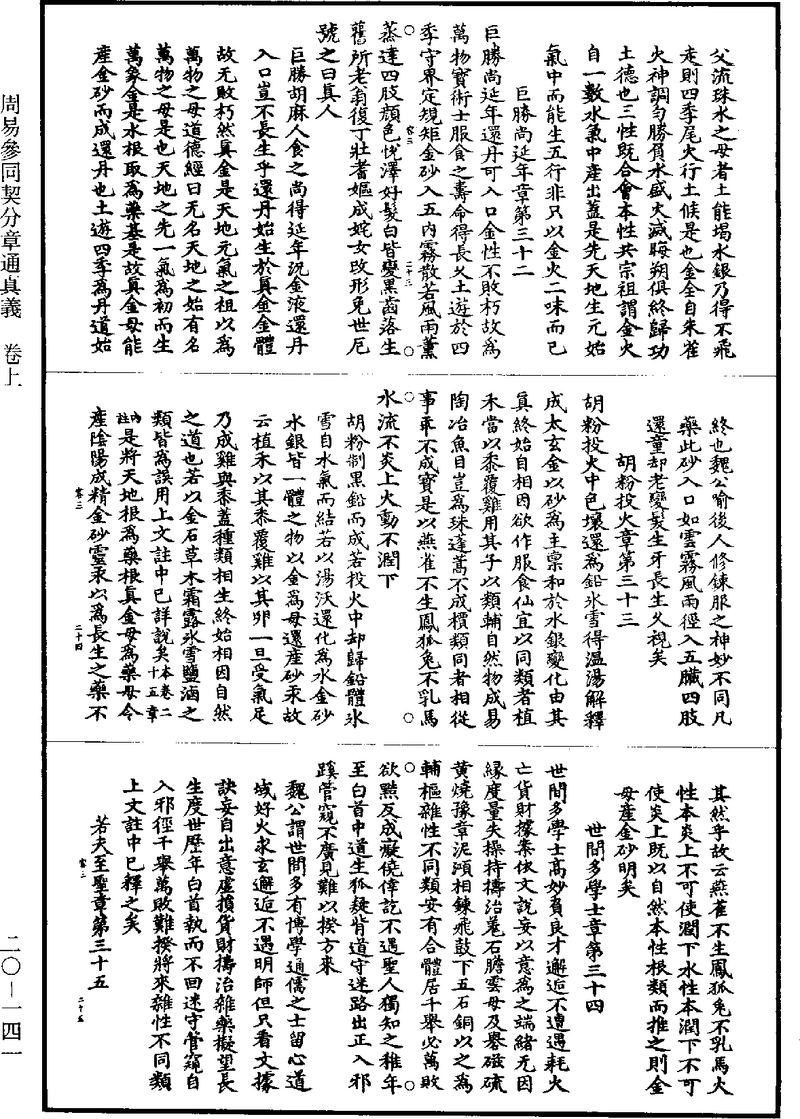 父流珠水之母者土能堨水銀乃得不飛
走則四季尾火行土候是也金全自朱雀
火神調勻勝負水盛火滅晦朔俱終歸功
土德也三性既合會本性共宗祖謂金火
自一數水氣中産出蓋是先天地生元始
氣中而能生五行非只以金火二味而已
巨勝尚延年章第三十二
巨勝尚延年還丹可入口金性不敗朽故爲
萬物寶術士服食之壽命得長久土遊於四
季守界定規矩金砂入五內霧散若風雨薰
蒸達四肢顔色悅澤好髮白皆變黑齒落生
舊所老翁復丁壯耆嫗成姹女改形免世厄
號之曰真人
巨勝胡麻人食之尚得延年況金液還丹
入口豈不長生乎還丹始生於真金金體
故无敗朽然真金是天地元氣之祖以爲
萬物之母道德經曰无名天地之始有名
萬物之母是也天地之先一氣爲初而生
萬象金是水根取爲藥基是故真金母能
産金砂而成還丹也土遊四季爲丹道始
終也魏公喻後人修鍊服之神妙不同凡
藥此砂入口如雲霧風雨徑入五臟四肢
還童却老變髮生牙長生久視矣
胡粉投火章第三十三
胡粉投火中色壞還爲鉛冰雪得温湯解釋
成太玄金以砂爲主稟和於水銀變化由其
真終始自相因欲作服食仙宜以同類者植
禾當以黍覆雞用其子以類輔自然物成易
陶冶魚目豈爲珠蓬蒿不成檟類同者相從
事乖不成寶是以燕雀不生鳳狐兔不乳馬
水流不炎上火動不潤下
胡粉制黑鉛而成若投火中却歸鉛體冰
雪自水氣而結若以湯沃還化爲水金砂
水銀皆一體之物以金爲母還産砂汞故
云植禾以其黍覆雞以其卵一旦受氣足
乃成雞與黍蓋種類相生終始相因自然
之道也若以金石草木霜露冰雪鹽滷之
類皆爲誤用上文註中已詳說矣本卷二十五章
內註是將天地根爲藥根真金母爲藥母令
産陰陽成精金砂靈汞以爲長生之藥不
其然乎故云燕雀不生鳳狐兔不乳馬火
性本炎上不可使潤下水性本潤下不可
使炎上既以自然本性根類而推之則金
母産金砂明矣
世間多學士章第三十四
世間多學士高妙負良才邂逅不遭遇耗火
亡貨財據案依文說妄以意爲之端緒无因
緣度量失操持擣治羌石膽雲母及礬磁硫
黄燒豫章泥澒相鍊飛鼓下五石銅以之爲
輔樞雜性不同類安有合體居千舉必萬敗
欲黠反成癡僥倖訖不遇聖人獨知之稚年
至白首中道生狐疑背道守迷路出正入邪
蹊管窺不廣見難以揆方來
魏公謂世間多有博學通儒之士留心道
域好火求玄邂逅不遇明師但只看文據
訣妄自出意虛損貨財擣治雜藥擬望長
生度世歷年白首執而不回迷守管窺自
入邪徑千舉萬敗難揆將來雜性不同類
上文註中已釋之矣
若夫至聖章第三十五
周易參同契分章通真義 卷上
二〇—一四一